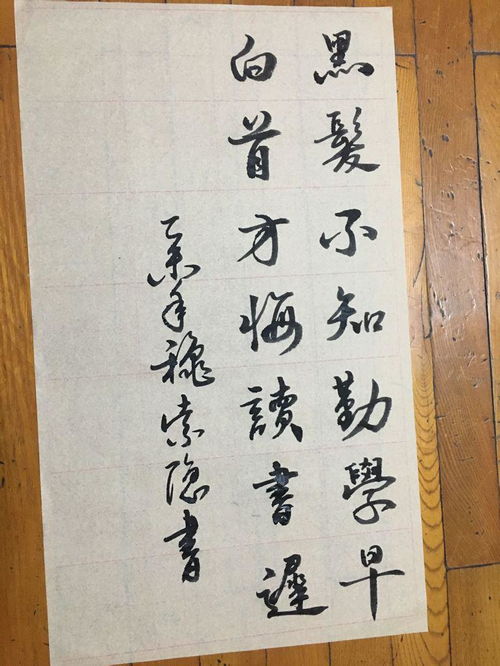 黑髮不知勤學早
白首方悔讀書遲
年穐索隐書